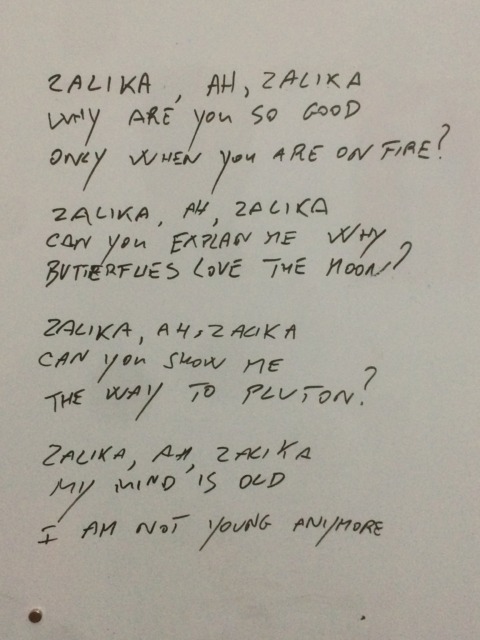 ZALIKA, AH, ZALIKA
WHY ARE YOU SO GOOD
ONLY WHEN YOU ARE ON FIRE?
ZALIKA, AH, ZALIKA
CAN YOU EXPLAN ME WHY
BUTTERFLIES LOVE THE MOON?
ZALIKA, AH, ZALIKA
CAN YOU SHOW ME
THE WAY TO PLUTON?
ZALIKA, AH, ZALIKA
MY MIND IS OLD
I AM NOT YOUNG ANYMORE